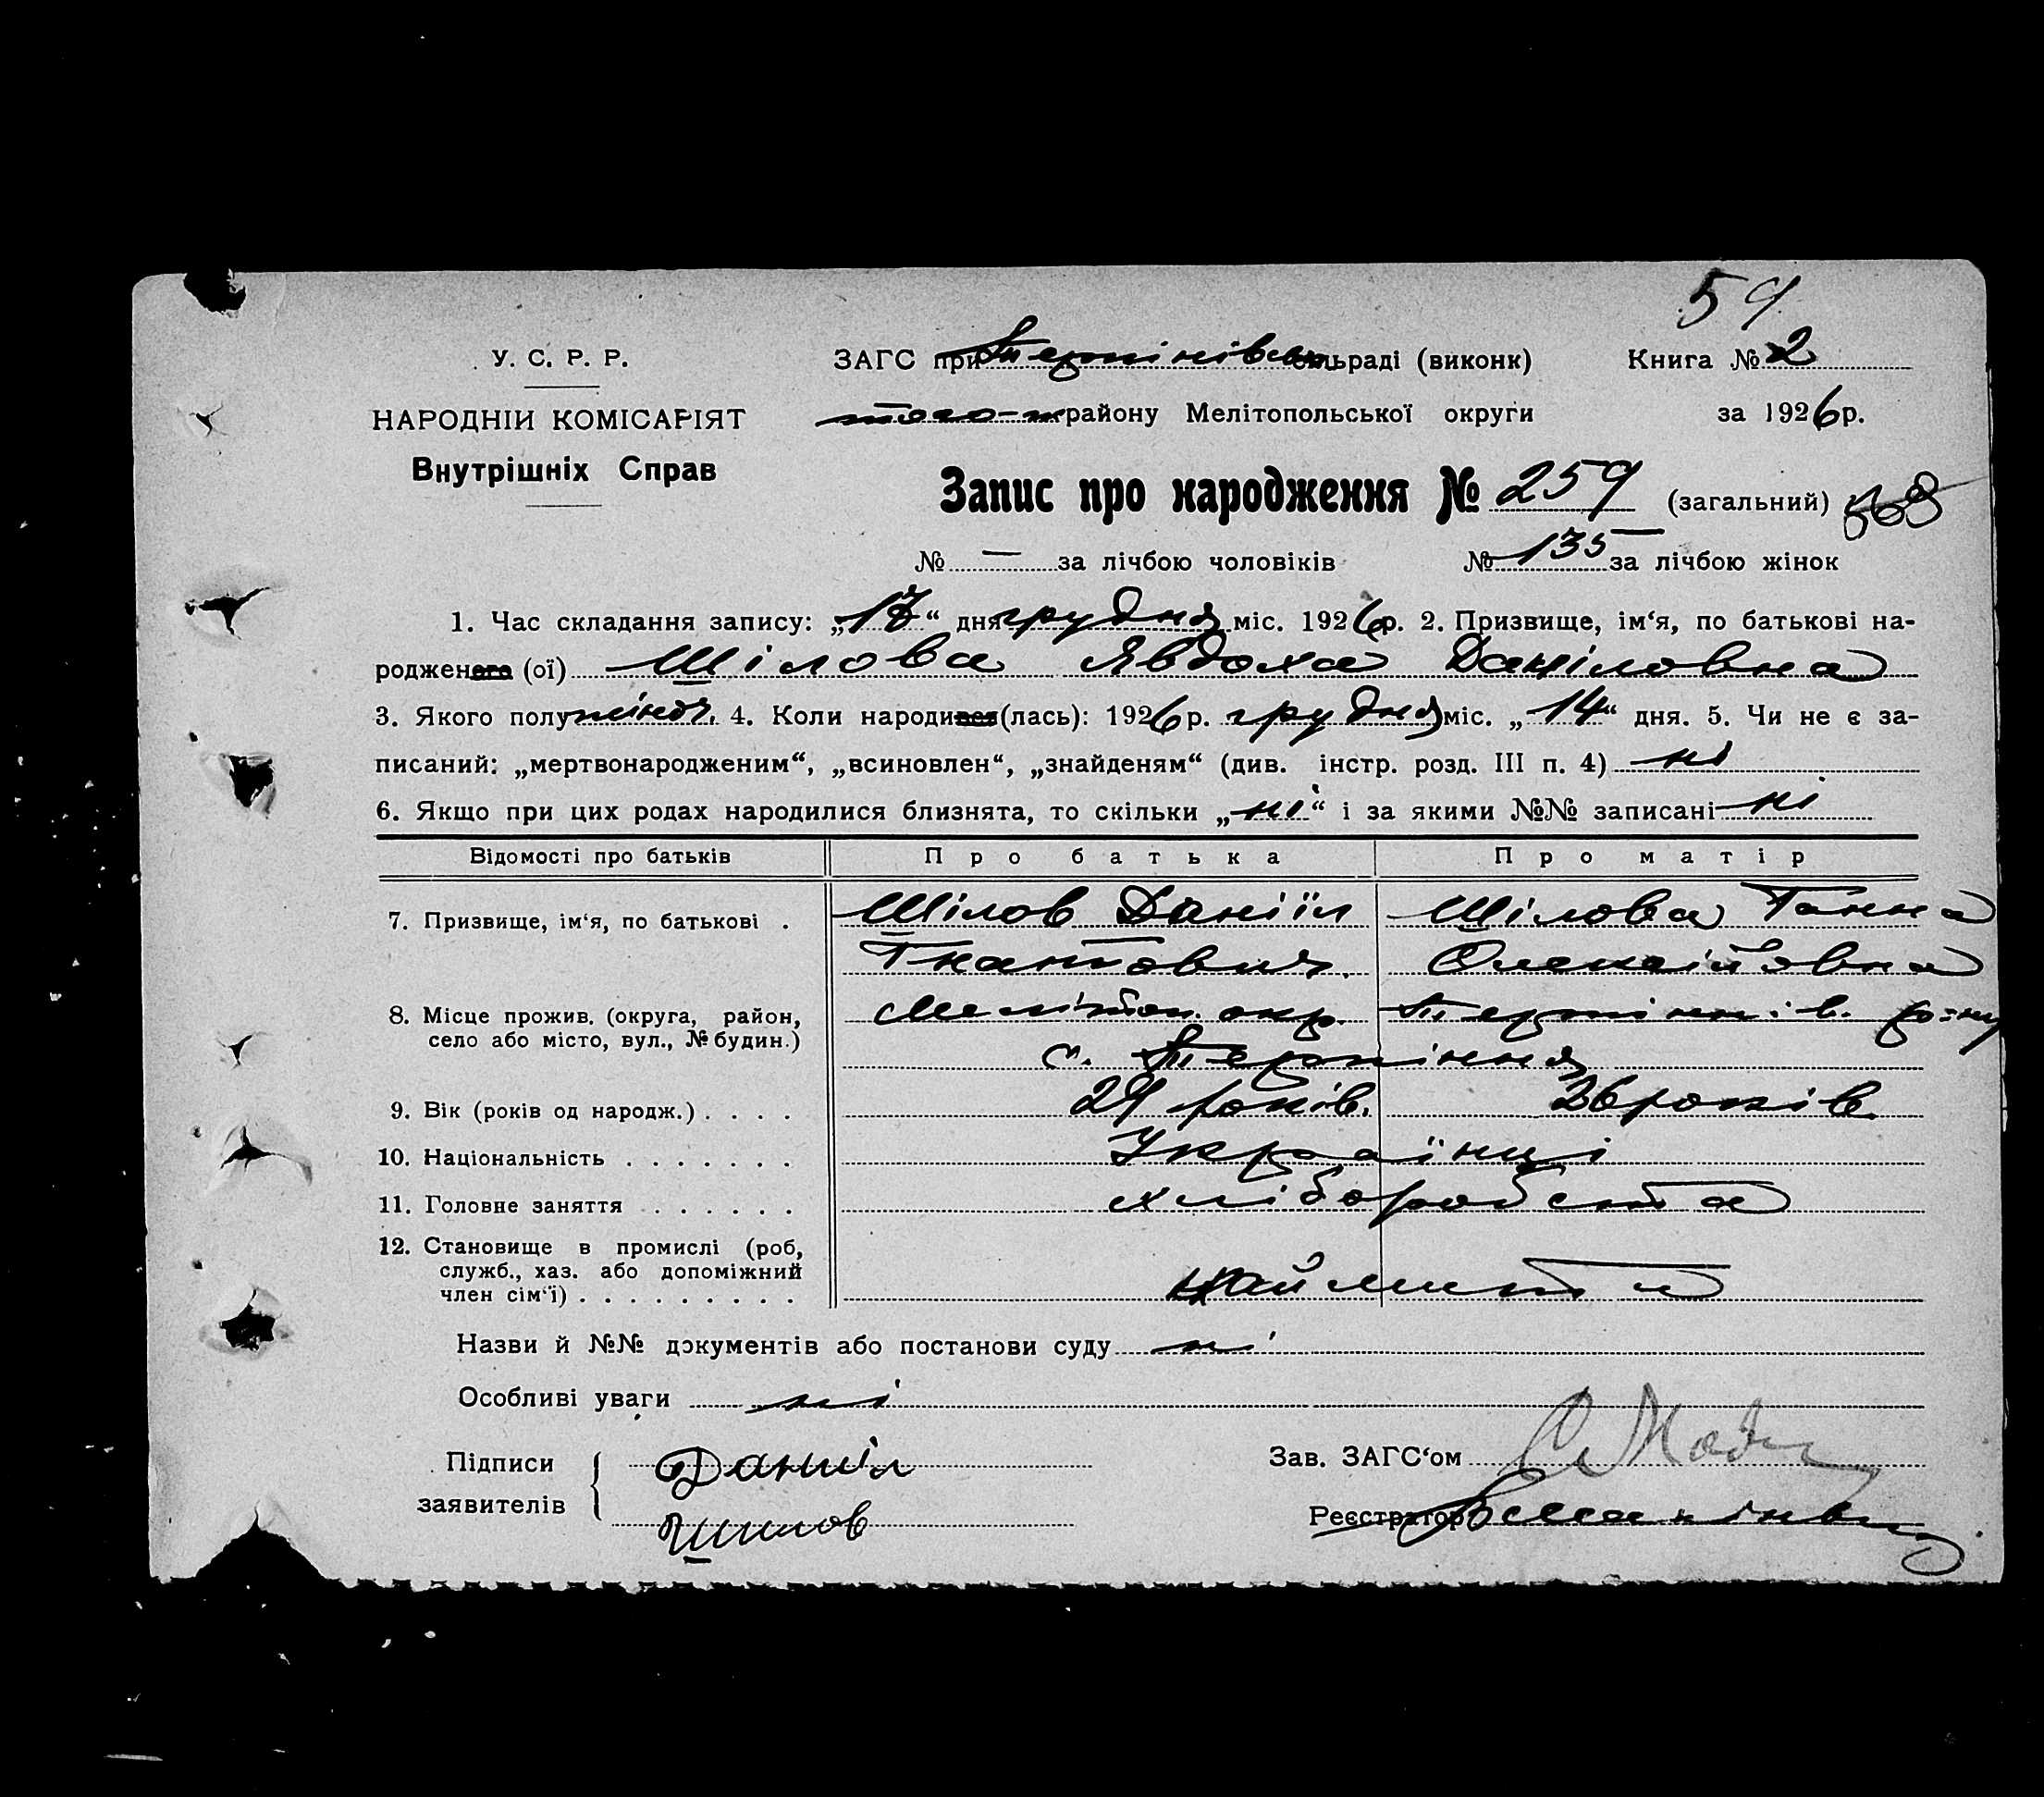 59
У. С. Р. Р. ЗАГС при Терпінівськ сільраді (виконк) Книга № 2
НАРОДНІЙ КОМІСАРІЯТ того-ж району Мелітопольської округи за 1926 р.
Внутрішніх Справ
Запис про народження № 259 (загальний)
№ — за лічбою чоловіків № 135 за лічбою жінок
1. Час складання запису: „17“ дня грудня міс. 1926 р. 2. Призвище, ім‘я, по батькові на-
родженого (ої) Шілова Явдоха Даніловна
3. Якого полу жіноч. 4. Коли народився (лась): 1926 р. грудня міс. „14“ дня. 5. Чи не є за-
писаний: „мертвонародженим“, „всиновлен“, „знайденям“ (див. інстр. розд. III п. 4) ні
6. Якщо при цих родах народилися близнята, то скільки „ні“ і за якими №№ записані ні
Відомості про батьків Про батька Про матір
7. Призвище, ім‘я, по батькові . Шілов Даніїл Шілова Ганна
Гнатович. Олексійовна
8. Місце прожив. (округа, район, Мелітоп. окр. Терпінн.ів. р-ну
село або місто, вул., № будин.) с. Терпіння
9. Вік (років од народж.) . . . . 29 років. 26 років.
10. Національність . . . . . . . Українці
11. Головне заняття . . . . . . хліборобство
12. Становище в промислі (роб,
служб., хаз. або допоміжний
член сім‘ї) . . . . . . . . .
Назви й №№ документів або постанови суду ні
Особливі уваги ні
Підписи Даниил Зав. ЗАГС‘ом
заявителів Шилов Реєстратор